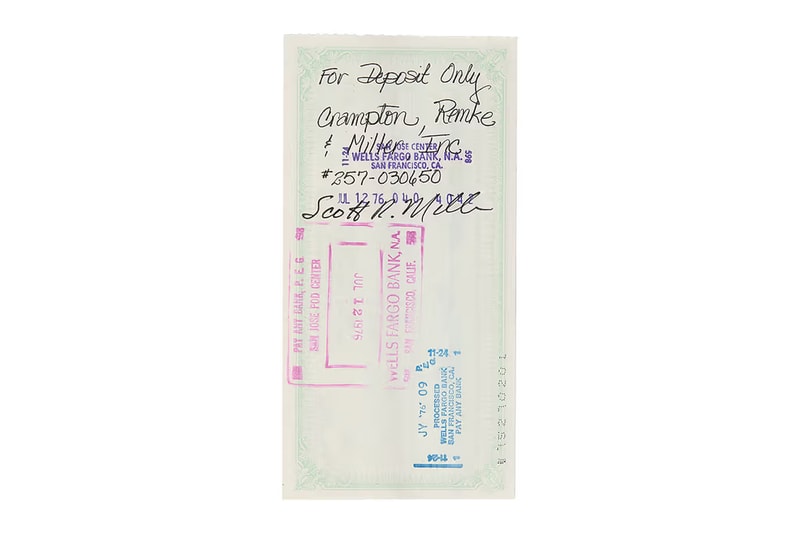 For Deposit Only
Crampton, Remke
& Miller, Inc.
11-24 SAN JOSE CENTER 598
WELLS FARGO BANK, N.A.
SAN FRANCISCO, CA.
#257-030650
JUL 12 76 040 4042
Scott R. Miller
PAY ANY BANK, P. E. G.
SAN JOSE POD CENTER
JUL 12 1976
WELLS FARGO BANK, N.A.
SAN FRANCISCO, CALIF.
JY '76' 09
P. E G. 11-24
PROCESSED
WELLS FARGO BANK
SAN FRANCISCO, CA.
PAY ANY BANK
11-24